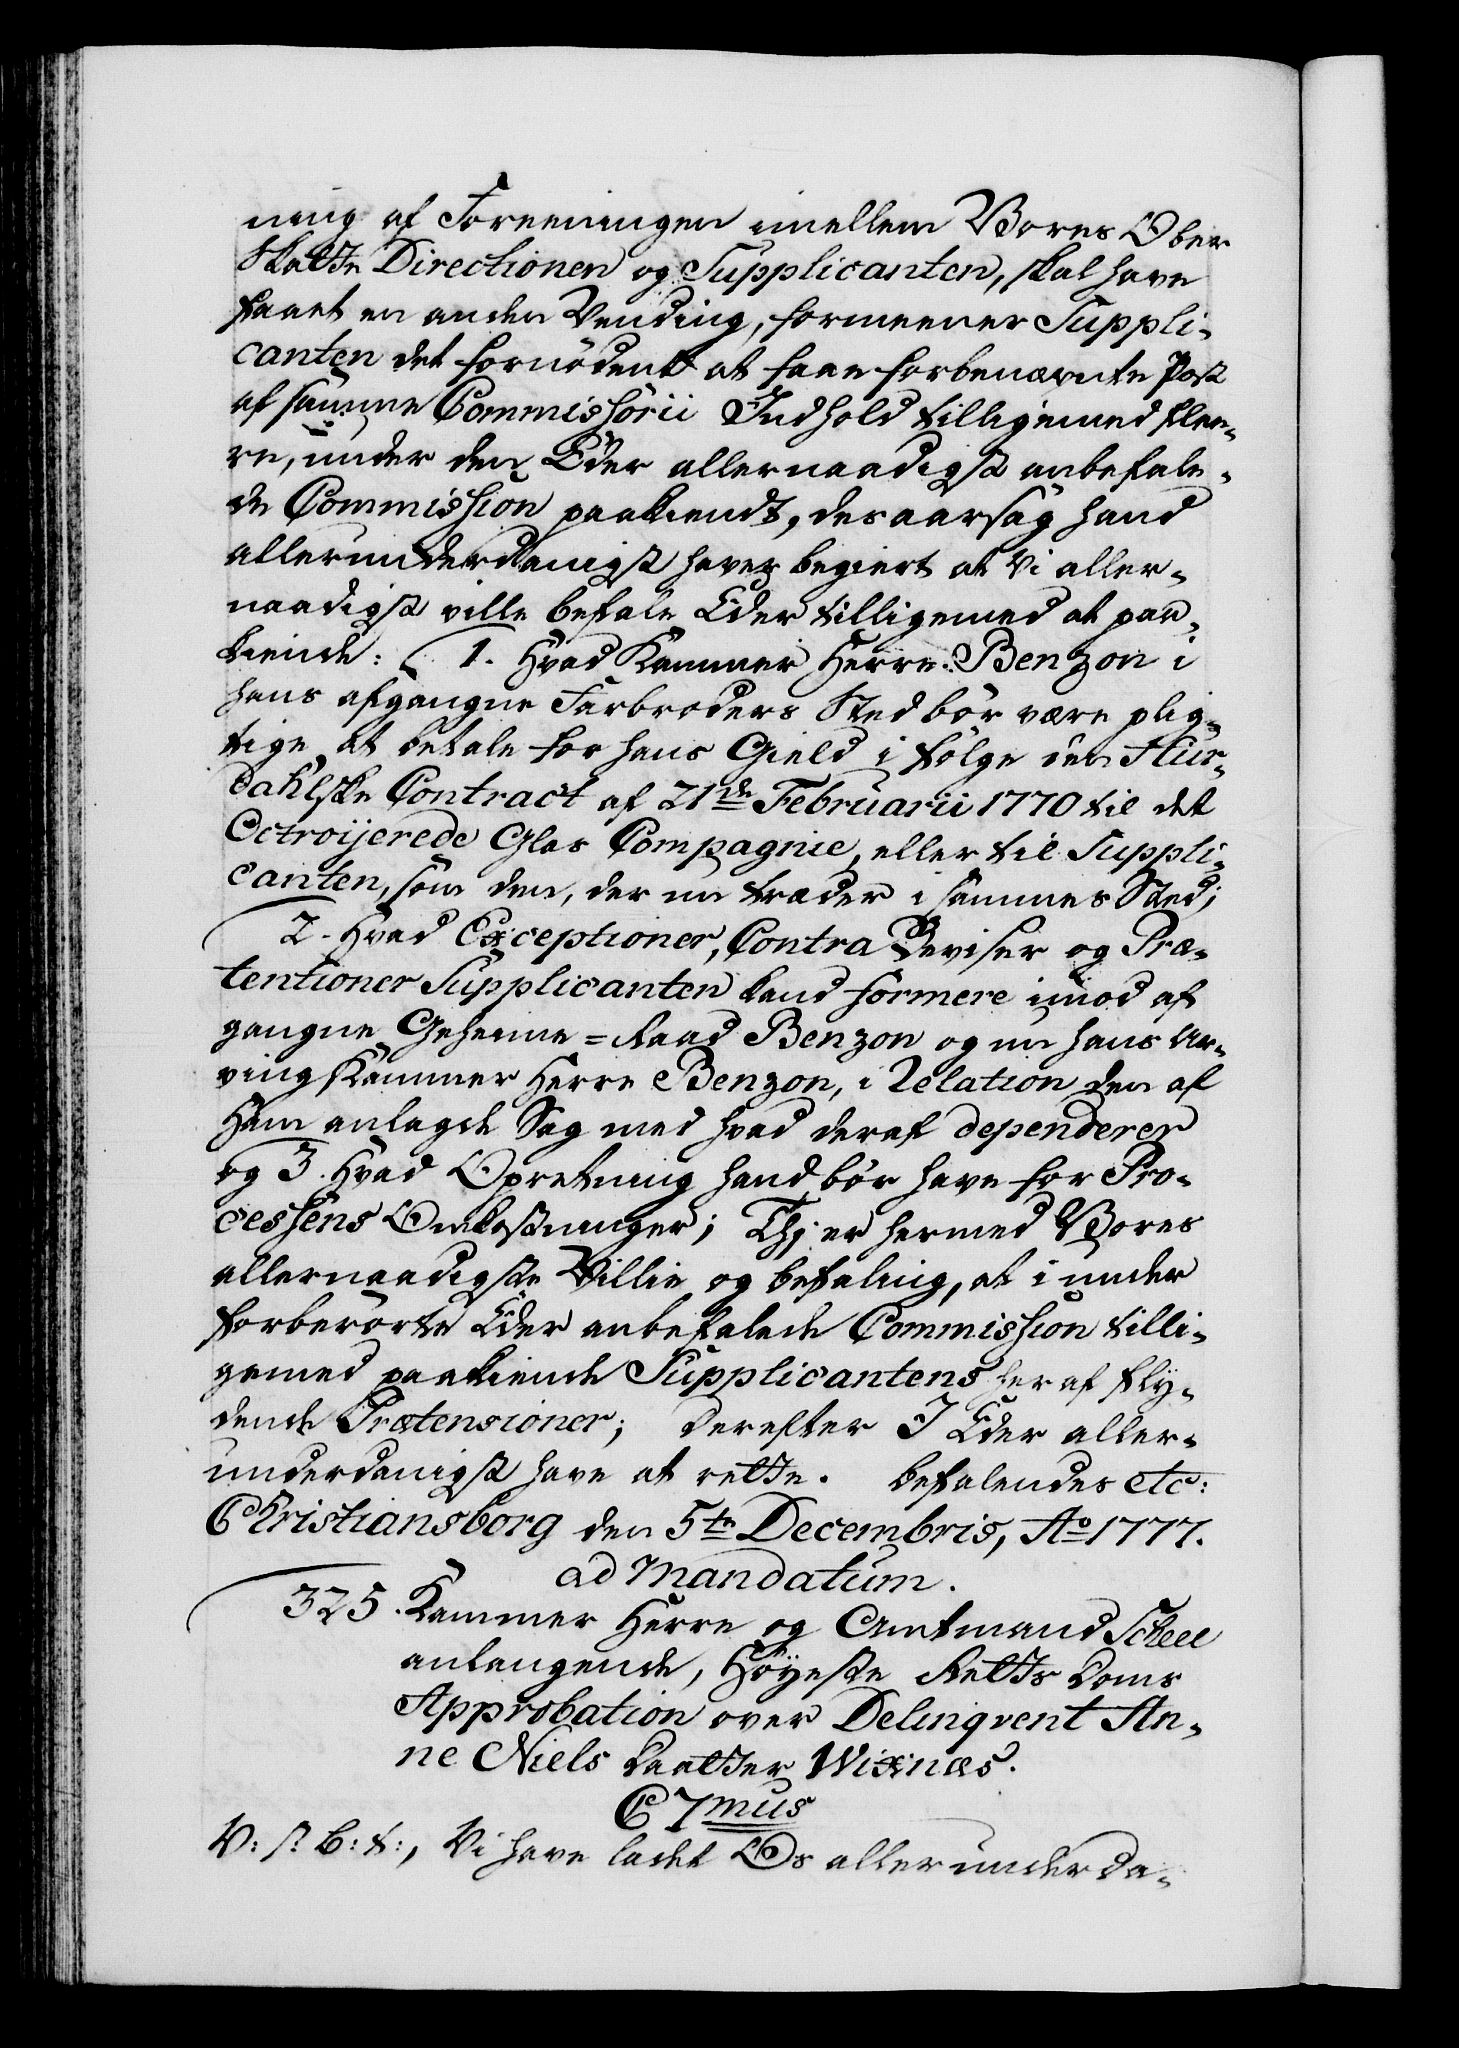 ning af Foreeningen imellem Vores Ober
Skatte Directionen og Supplicanten, skal have
faaet en anden Vending, formeener Suppli-
canten det fornödent at faae forbenævnte Post
af samme Commissorii Indhold tilligemed flee-
re, under den Eder allernaadigst anbefale-
de Commission paakiendt, desaarsag hand
allerunderdanigst haver begiert at Vi aller-
naadigst ville befale Eder tilligemed at paa-
kiende: 1. Hvad Kammer Herre Benzon i
hans afgangne Farbroders Sted bör være plig-
tige at betale for hans Gield i følge den Hur-
dahlske Contract af 21de Februarii 1770 til det
Octroijerede Glas Compagnie, eller til Suppli-
canten, som den, der nu træder i sammes Sted;
2. Hvad Exceptioner, Contra Beviser og Præ-
tentioner Supplicanten kand formere imod af
gangne Geheime=Raad Benzon og nu hans Ar-
ving Kammer Herre Benzon, i Relation den af
Ham anlagde Sag med hvad deraf dependerer
og 3. Hvad Opretning hand bör have for Pro-
cessens Omkostninger; Thj er hermed Vores
allernaadigste Villie og befaling, at i under
forberörte Eder anbefalede Commission tilli-
gemed paakiende Supplicantens her af fly-
dende Prætensioner; derefter I Eder aller-
underdanigst have at rette. befalendes etc:
Christiansborg den 5te Decembris, Ao 1777.
ad Mandatum.
325. Kammer Herre og Amtmand Scheel
anlangende, Höyeste Retts Doms
Approbation over Delinqvent An-
ne Niels Daatter Wixnæs.
C 7mus
V: s: b: t:, Vi have ladet Os allerunderda-